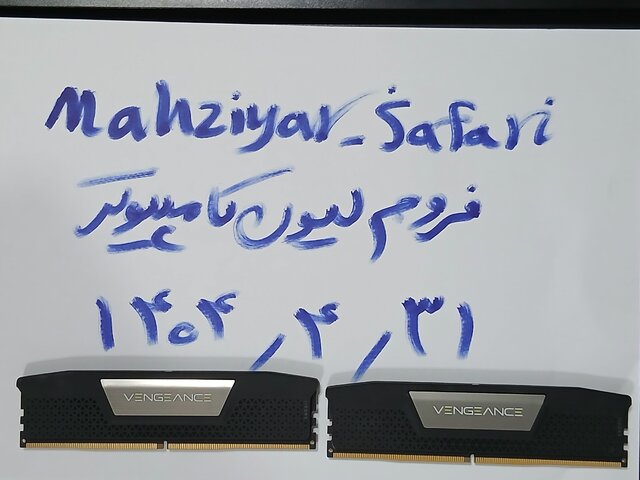 Mahziyar_Safari
فروم لیون کامپیوتر
۱۴۰۴/۴/۳۱
VENGEANCE
VENGEANCE